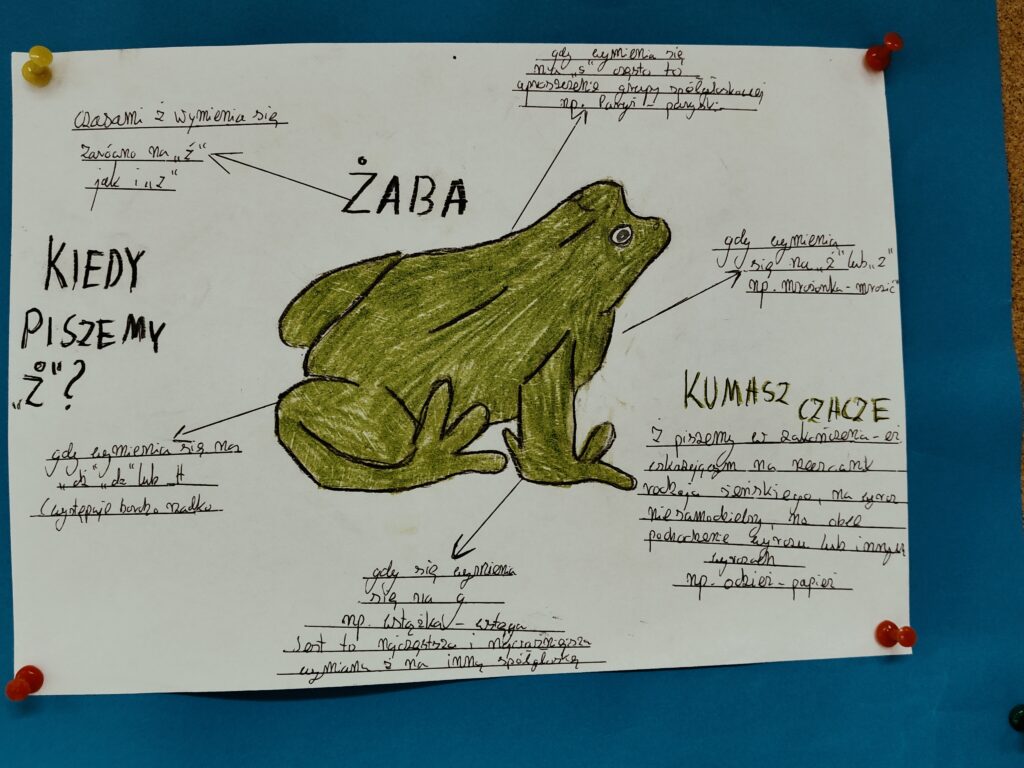 gdy wymienia się
na „s” często to
uproszczenie grupy spółgłoskowej
np. Paryż - paryski
czasami ż wymienia się
zarówno na „ź”
jak i „z”
ŻABA
KIEDY
PISZEMY
„Ż”?
gdy wymienia
się na „ź” lub „z”
np. mrożonka - mrozić
gdy wymienia się na
„dź” „dz” lub
(występuje bardzo rzadko
KUMASZ
CZACZE
Ż piszemy w
na rzeczownik
rodzaju żeńskiego, na wyraz
niesamodzielny, na obce
pochodzenie wyrazu lub innych
wyrazach
np. odzież - papież
gdy się wymienia
się na g
np. wstążka - wstęga
Jest to najczęstsza i
wymiana ż na inną spółgłoskę